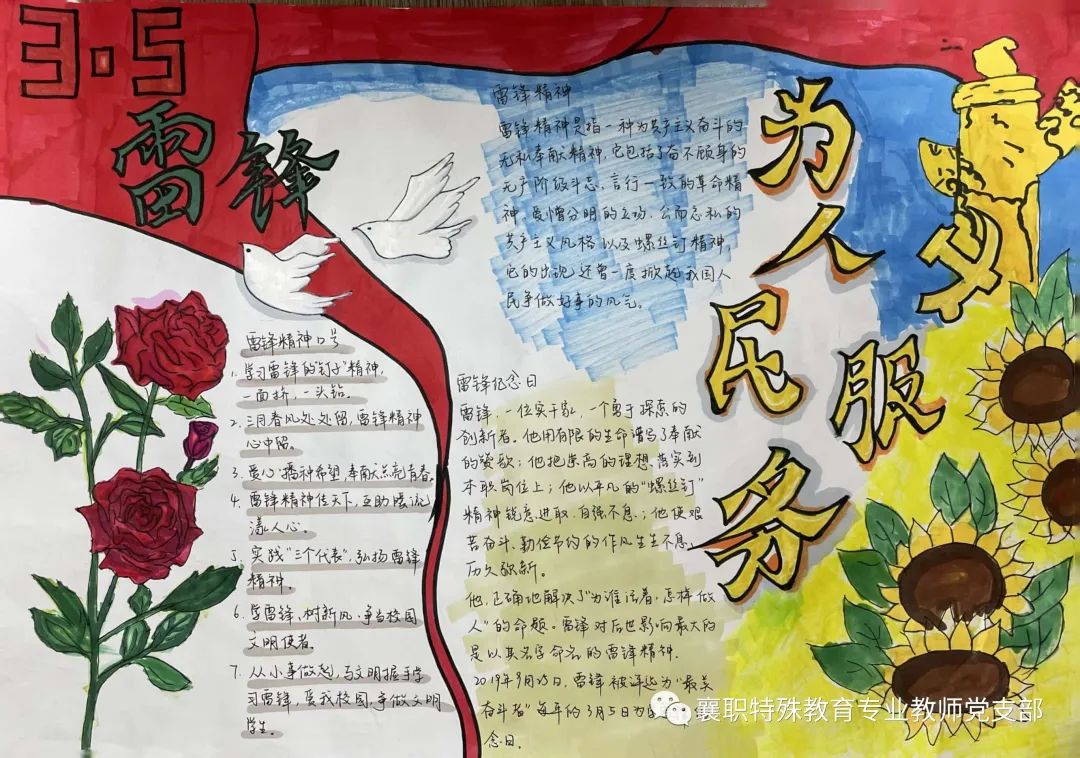 3·5
雷锋
为人民服务
雷锋精神
雷锋精神是指一种为共产主义奋斗的
无私奉献精神，它包括了奋不顾身的
无产阶级斗志、言行一致的革命精
神、爱憎分明的立场、公而忘私的
共产主义风格以及螺丝钉精神，
它的出现还曾一度掀起我国人
民争做好事的风气。
雷锋精神口号
1、学习雷锋的"钉子"精神，
一面挤，一头钻。
2、三月春风处处留，雷锋精神
心中留。
3、爱心播种希望，奉献点亮青春。
4、雷锋精神传天下，互助暖流
漾人心。
5、实践"三个代表"，弘扬雷锋
精神。
6、学雷锋，树新风，争当校园
文明使者。
7、从小事做起，与文明握手学
习雷锋，爱我校园，争做文明
学生。
雷锋纪念日
雷锋，一位实干家，一个勇于探索的
创新者。他用有限的生命谱写了奉献
的赞歌；他把崇高的理想、落实到
本职岗位上；他以平凡的"螺丝钉"
精神锐意进取、自强不息；他使艰
苦奋斗、勤俭节约的作风生生不息，
历久弥新。
他，正确地解决了"为谁活着、怎样做
人"的命题。雷锋对后世影响最大的
是以其名字命名的雷锋精神.
2019年9月25日，雷锋被评选为"最美
奋斗者"每年的3月5日为
念日。
襄职特殊教育专业教师党支部